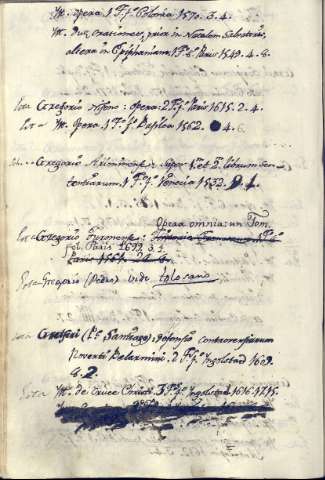 Yt. opera 1 T. fº Colonia 1570. 3. 4.
Yt. duæ orationes, prior in Natalem Salvatoris,
altera in Epiphaniam 1 Tº 8º Paris 1549. 4. 8.
Gregorio Niseno: opera: 2 T. fº Paris 1615. 2. 4.
Yt. Opera. 1 Tº fº Basilea 1562. 4. 6.
Gregorio Ariminense super 1. et 2. librum Sen-
tentiarum. 1 Tº fº Venecia 1532. 2. 1.
Opera omnia: un Tom.
Gregorio Turonense:
fol. Paris 1699. 3. 1.
Paris 1561.
Gregorio (Pedro) vide Tolosano.
Gretsero (Pe. Santiago) defensio controversiarum
Roverti Belarmini. 2 Tº fº Ingolstad 1609.
2.
Yt. de Cruce Christi. 3 Tº fº Ingolstad 1616.